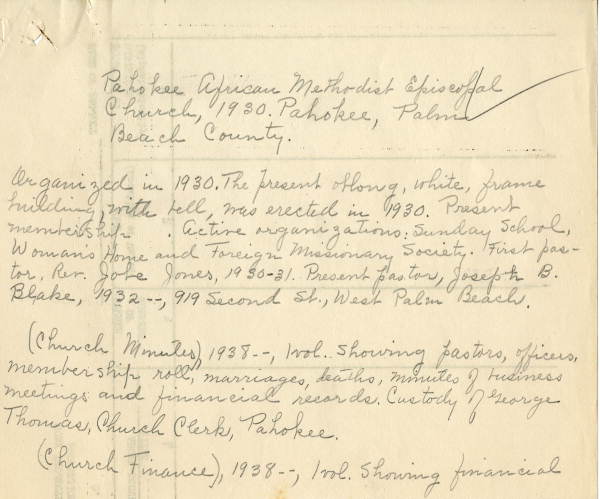 Pahokee African Methodist Episcopal
Church, 1930. Pahokee, Palm
Beach County.
Organized in 1930. The present oblong, white, frame
building, with bell, was erected in 1930. Present
membership . Active organizations: Sunday School,
Womans Home and Foreign Missionary Society. First pas-
tor, Rev. Jobe Jones, 1930-31. Present pastor, Joseph B.
Blake, 1932--, 919 Second St., West Palm Beach.
(Church Minutes), 1938--, 1 vol. Showing pastors, officers,
membership roll, marriages, deaths, minutes of business
meetings and financial records. Custody of George
Thomas, Church Clerk, Pahokee.
(Church Finance), 1938--, 1 vol. Showing financial